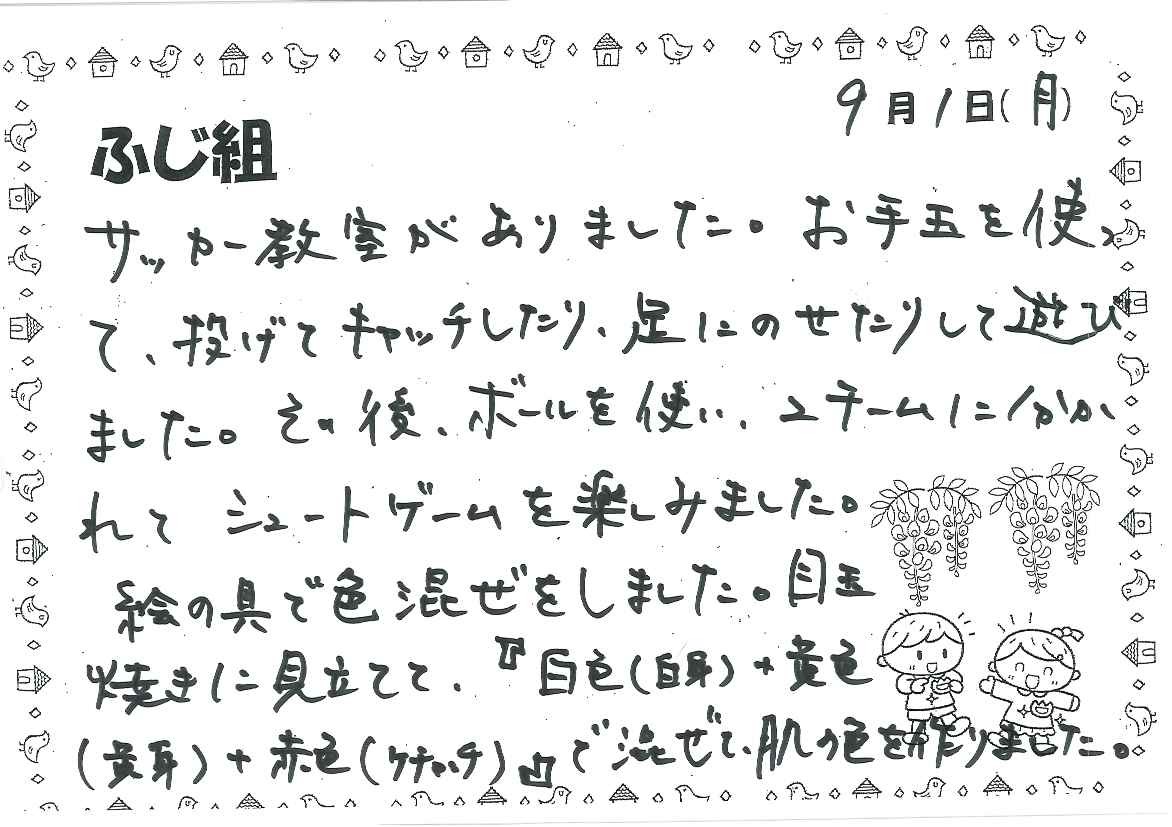 9月1日(月)
ふじ組
サッカー教室がありました。お手玉を使っ
て、投げてキャッチしたり、足にのせたりして遊び
ました。その後、ボールを使い、2チームに分か
れて シュートゲームを楽しみました。
絵の具で色混ぜをしました。目玉
焼きに見立てて、『白色(白身)+黄色
(黄身)+赤色(ケチャップ)』で混ぜて、肌の色を作りました。